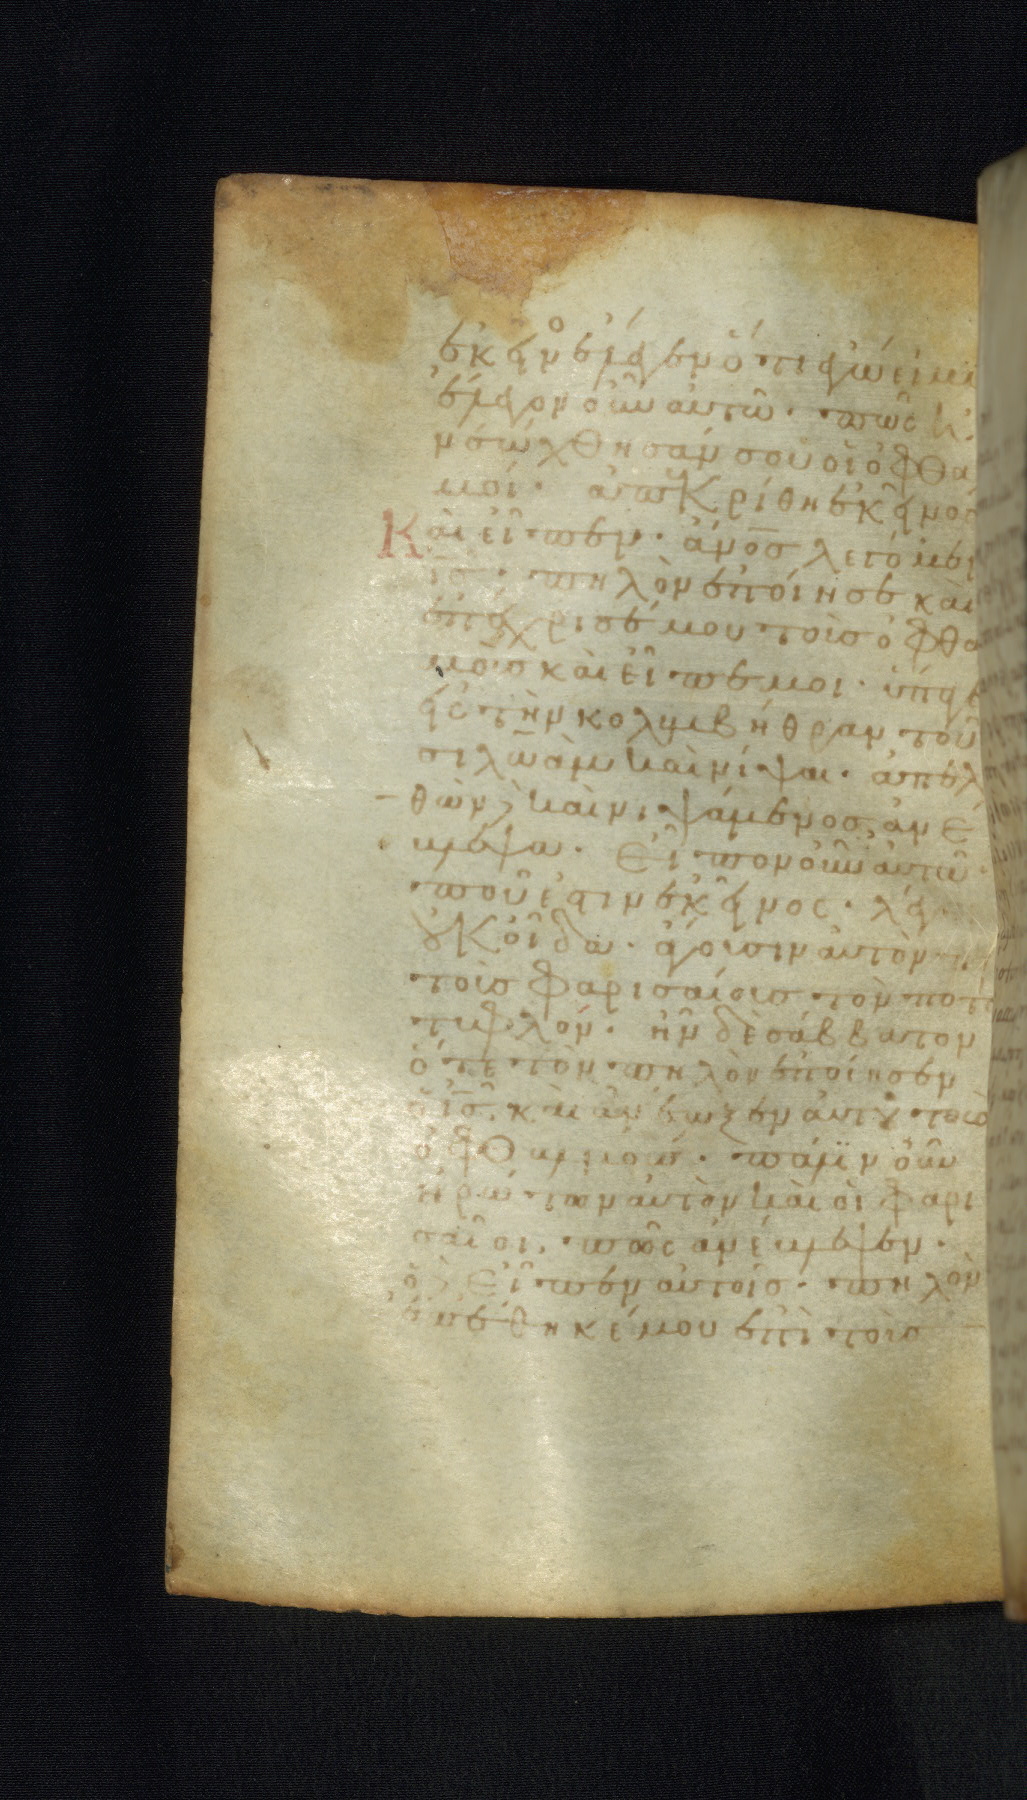 ἐκεῖνος ἔλεγεν ὅτι ἐγώ εἰμι
ἔλεγον οὖν αὐτῶ· πῶς
νεώχθησάν σου οἱ ὀφθα
μοί· ἀπεκρίθη ἐκεῖνος
Καὶ εἶπεν· ἄνος λεγόμεν
ις· πηλὸν ἐποίησε καὶ
ἐπέχρισέ μου τοὺς ὀφθα
μοὺς καὶ εἶπε μοι· ὕπαγε
εἰς τὴν κολυμβήθραν τοῦ
σιλωὰμ καὶ νίψαι· ἀπελ
θὼν δὲ καὶ νιψάμενος ἀνέ
βλεψα. Εἶπον οὖν αὐτῶ·
ποῦ ἐστιν ἐκεῖνος· λέγει
οὐκ οἶδα· ἄγουσιν αὐτὸν
τοὺς φαρισαίους τόν ποτε
τυφλόν· ἦν δὲ σάββατον
ὅτε τὸν πηλὸν ἐποίησεν
ὁ ις. καὶ ἀνέωξεν αὐτοῦ τοὺς
ὀφθαλμούς· πάλιν οὖν
ἠρώτων αὐτὸν καὶ οἱ φαρι
σαῖοι. πῶς ἀνέβλεψεν·
ὁ δὲ εἶπεν αὐτοῖς· πηλὸν
ἐπέθηκέ μου ἐπὶ τοὺς